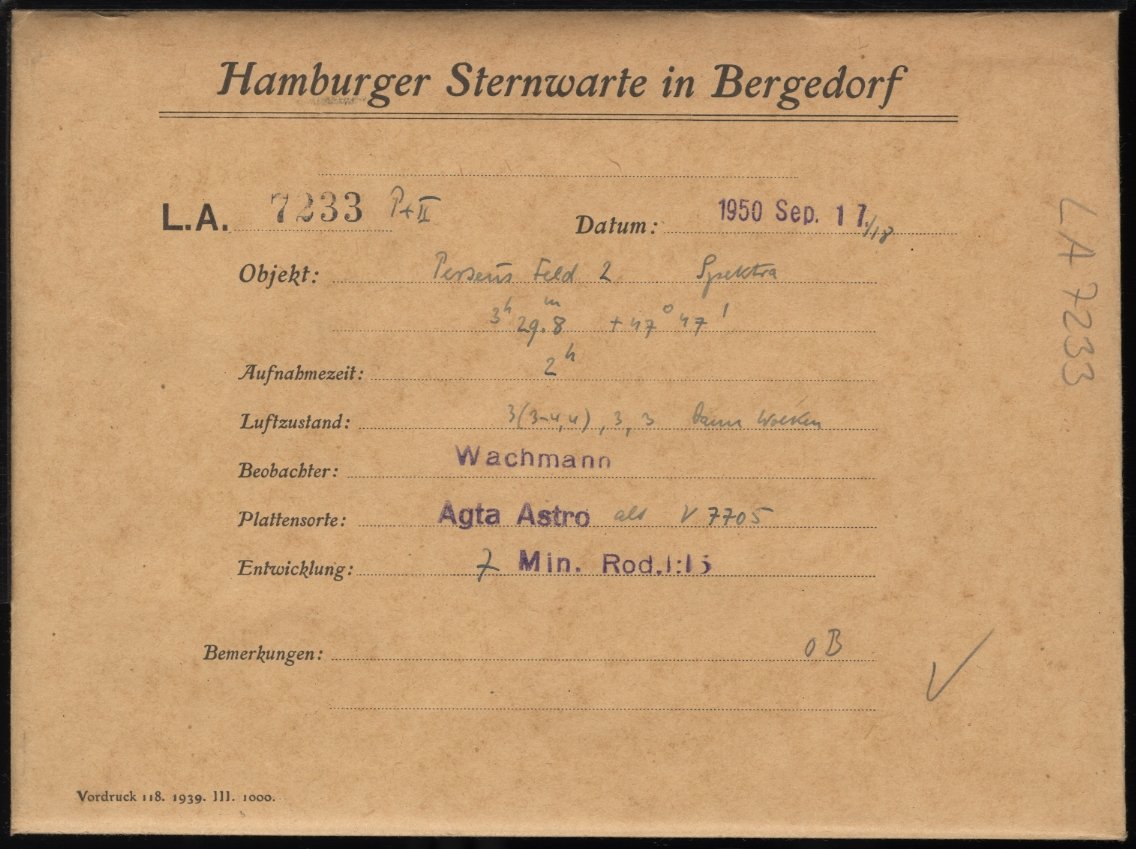 Hamburger Sternwarte in Bergedorf
L.A. 7233 P+II Datum: 1950 Sep. 17./18
Objekt: Perseus Feld 2 Spektra
3h 29.8m +47° 47'
Aufnahmezeit: 2h
Luftzustand: 3(3-4,4), 3, 3 dann Wolken
Beobachter: Wachmann
Plattensorte: Agfa Astro alt V 7705
Entwicklung: 7 Min. Rod. 1:15
Bemerkungen: oB
Vordruck 118. 1939. III. 1000.
LA 7233